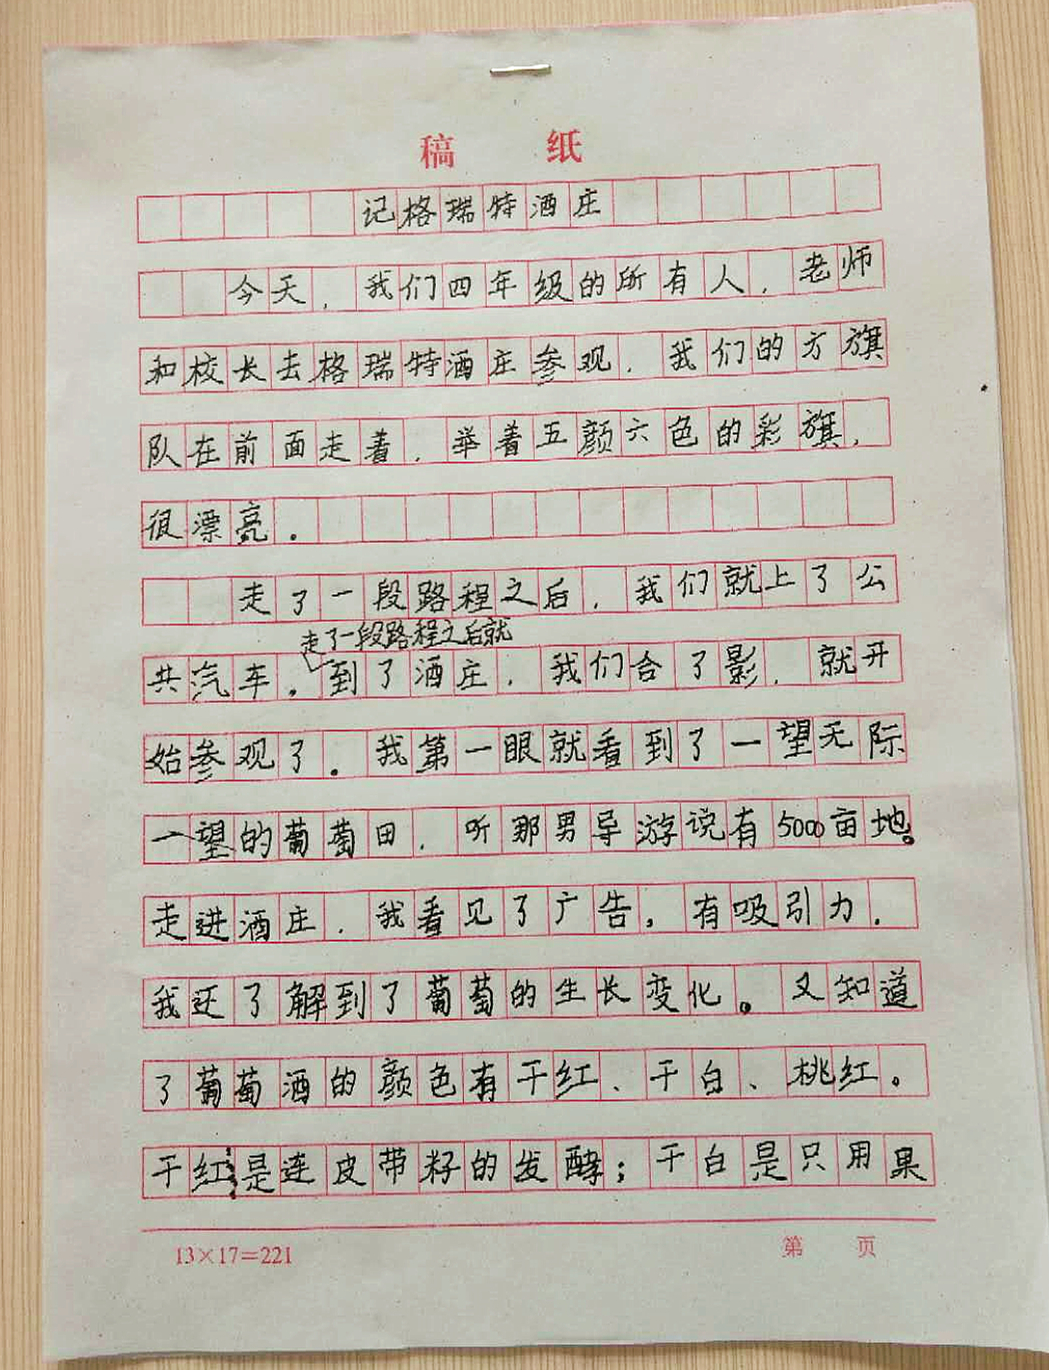 稿 纸
记格瑞特酒庄
今天，我们四年级的所有人，老师
和校长去格瑞特酒庄参观，我们的方旗
队在前面走着，举着五颜六色的彩旗，
很漂亮。
走了一段路程之后，我们就上了公
走了一段路程之后就
共汽车。到了酒庄，我们合了影，就开
始参观了。我第一眼就看到了一望无际
一望的葡萄田，听那男导游说有5000亩地。
走进酒庄，我看见了广告，有吸引力，
我还了解到了葡萄的生长变化。又知道
了葡萄酒的颜色有干红、干白、桃红。
干红是连皮带籽的发酵；干白是只用果
13×17=221 第 页